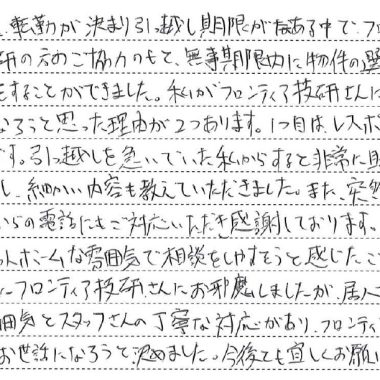 、転勤が決まり引っ越し期限がある中で、フ
研の方のご協力のもと、無事期限内に物件の選
をすることができました。私がフロンティア技研さんに
なろうと思った理由が2つあります。1つ目は、レスポ
す。引っ越しを急いでいた私からすると非常に助
し、細かい内容も教えていただきました。また、突然
からの電話にもご対応いただき感謝しております。
ットホームな雰囲気で相談をしやすそうと感じたこ
にフロンティア技研さんにお邪魔しましたが、居心
囲気とスタッフさんの丁寧な対応があり、フロンティ
お世話になろうと決めました。今後とも宜しくお願い